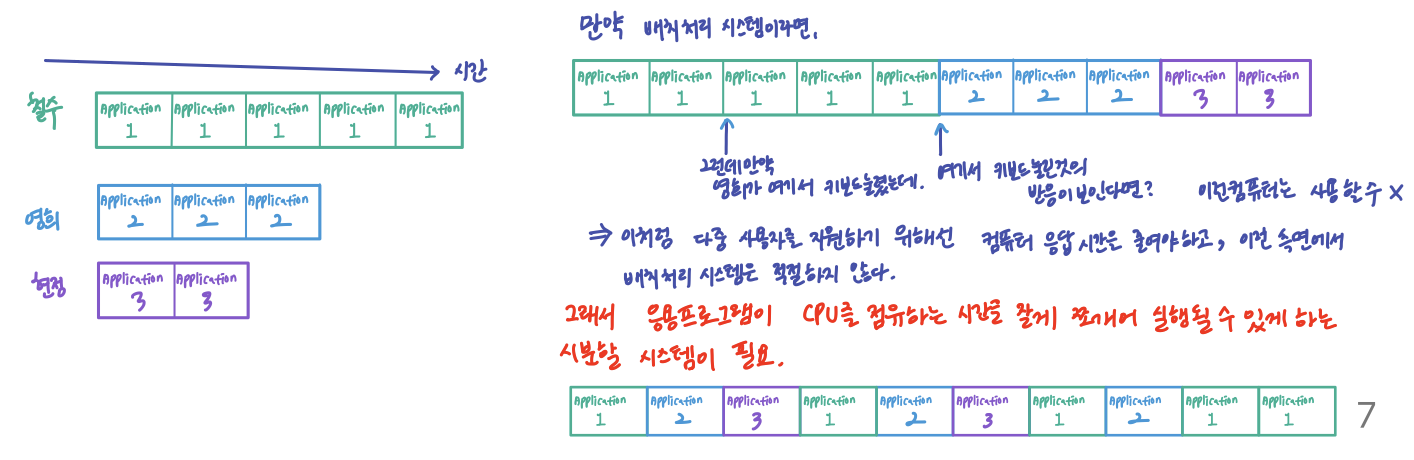 시간
철수
Application 1 Application 1 Application 1 Application 1 Application 1
영희
Application 2 Application 2 Application 2
현정
Application 3 Application 3
만약 배치처리 시스템이라면,
Application 1 Application 1 Application 1 Application 1 Application 1 Application 2 Application 2 Application 2 Application 3 Application 3
그런데만약
영희가 여기서 키보드눌렀는데.
여기서 키보드눌린것의
반응이보인다면?
이런컴퓨터는 사용할수 X
⇒ 이처럼 다중 사용자를 지원하기 위해선 컴퓨터 응답시간은 줄여야하고, 이런 측면에서
배치처리 시스템은 적절하지 않다.
그래서 응용프로그램이 CPU를 점유하는 시간을 잘게 쪼개어 실행될 수 있게 하는
시분할 시스템이 필요.
Application 1 Application 2 Application 3 Application 1 Application 2 Application 3 Application 1 Application 2 Application 1 Application 1
7